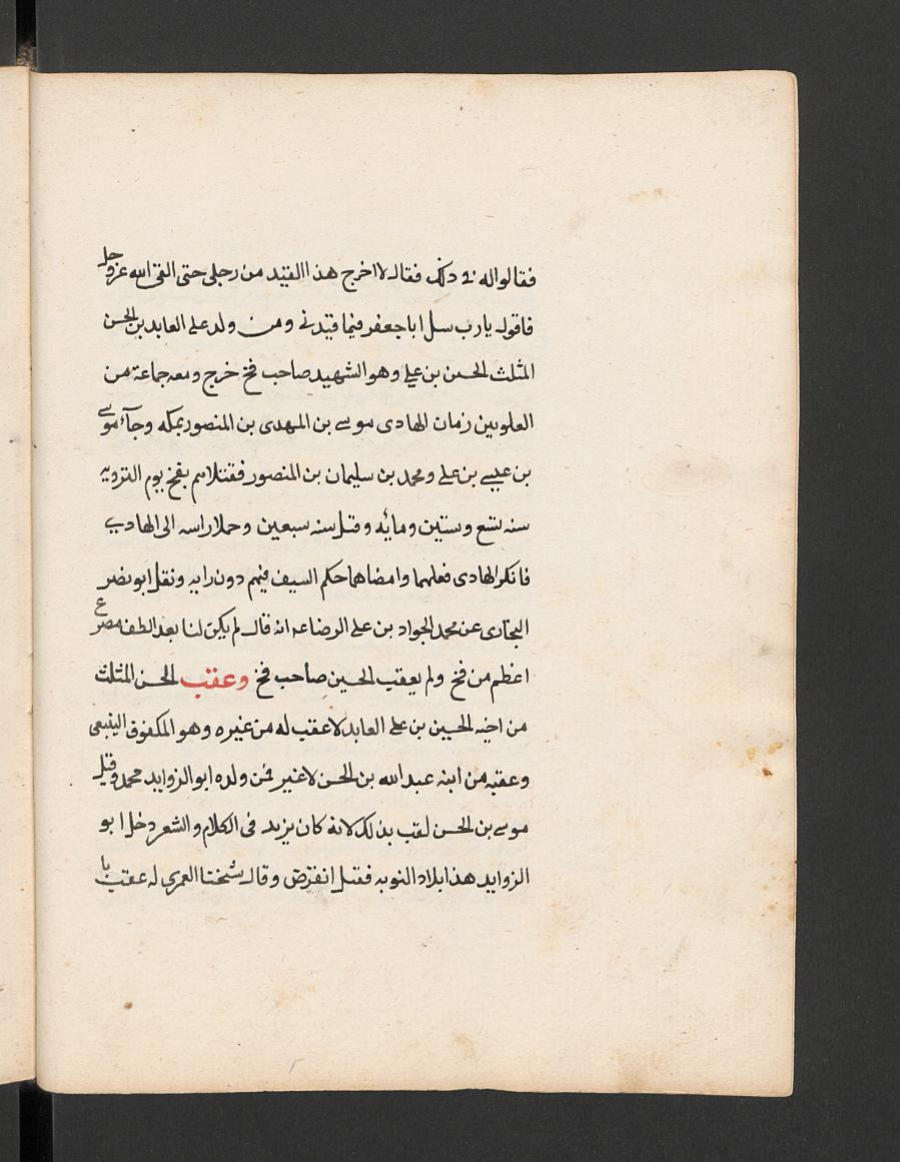 فقالوا له في ذلك فقال لا اخرج هذا القيد من رجلى حتى القى الله عز وجل
فاقول يارب سل ابا جعفر فيما قيدنى ومن ولد على العابد بن الحسن
المثلث الحسين بن على وهو الشهيد صاحب فخ خرج ومعه جماعة من
العلويين زمان الهادى موسى بن المهدى بن المنصور بمكه وجآء موسى
بن عيسى بن على ومحمد بن سليمان بن المنصور فقتلاهم بفخ يوم الترويه
سنه تسع وستين ومايه وقتل سنه سبعين وحملا راسه الى الهادى
فانكر الهادى فعلهما وامضاهما حكم السيف فيهم دون رايه ونقل ابو نصر
البخارى عن محمد الجواد بن على الرضا ع انه قال لم يكن لنا بعد الطف مصرع
اعظم من فخ ولم يعقب الحسين صاحب فخ وعقب الحسن المثلث
من اخيه الحسين بن على العابد لا عقب له من غيره وهو المكفوف الينبعى
وعقبه من ابنه عبد الله بن الحسن لا غير فمن ولده ابو الزوايد محمد وقيل
موسى بن الحسن لقب بذلك لانه كان يزيد فى الكلام والشعر دخل ابو
الزوايد هذا بلاد النوبه فقتل انقرض وقال شيختا العمرى له عقب با